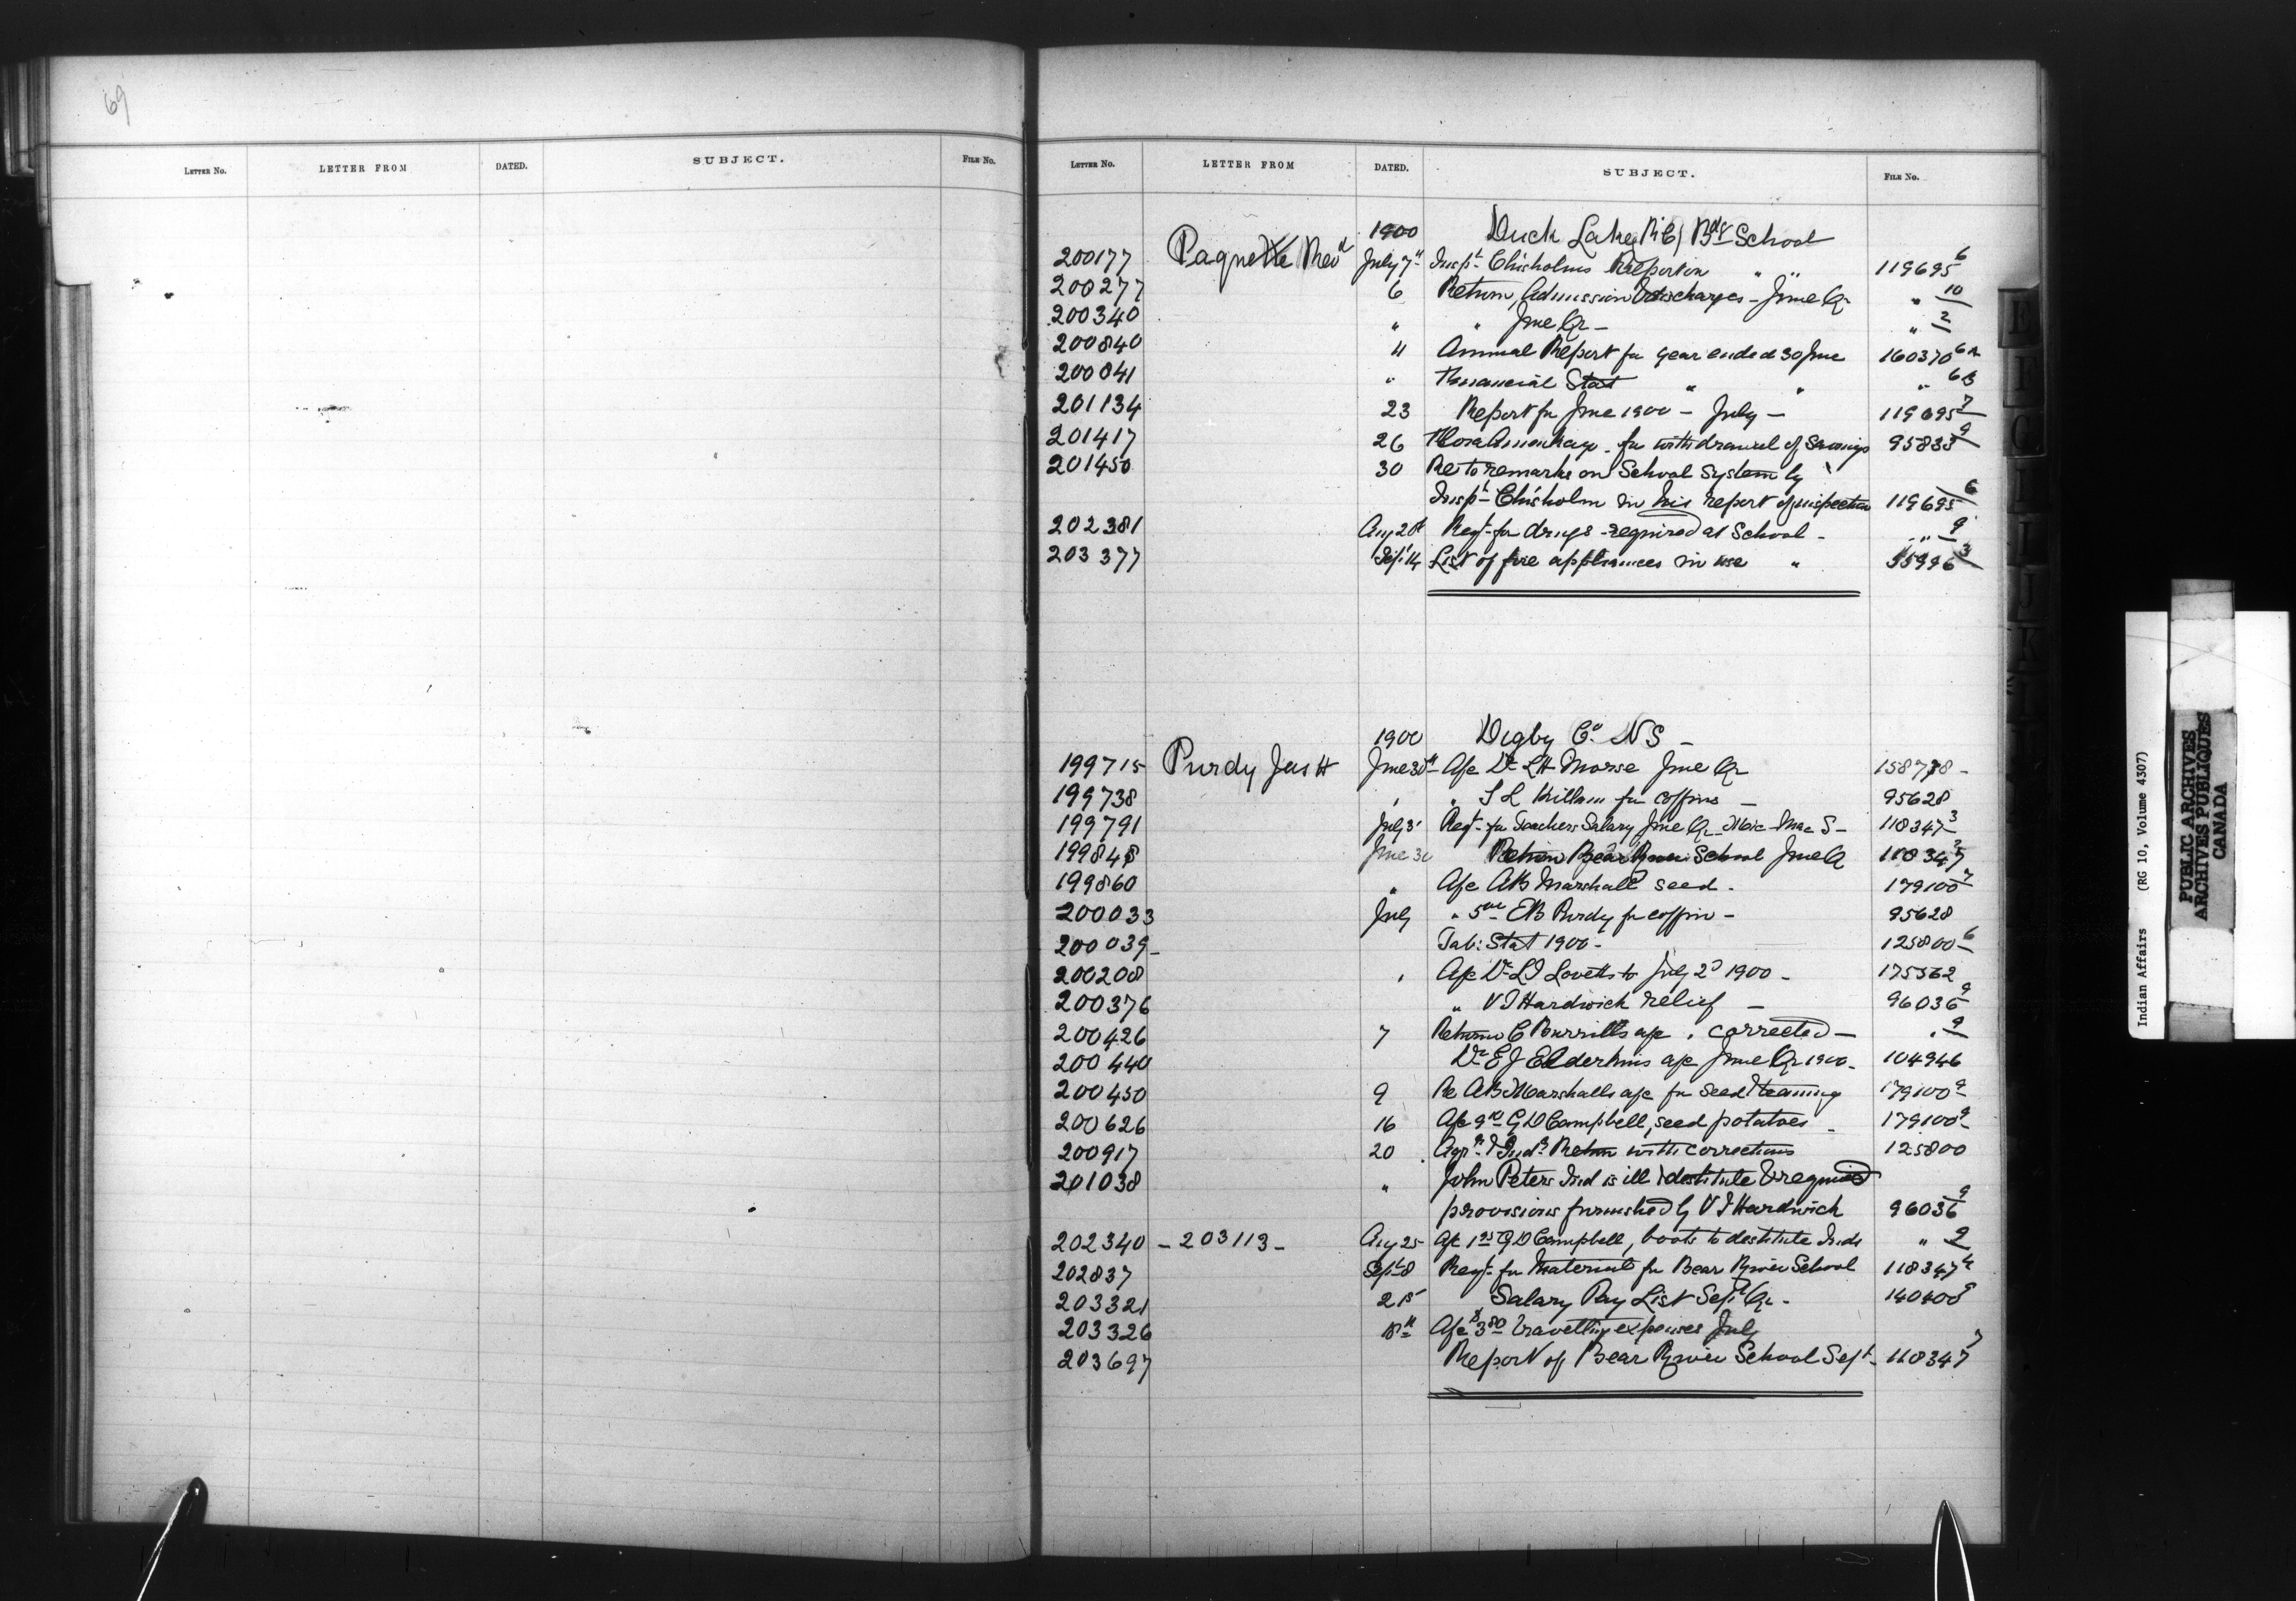 69
LETTER NO. LETTER FROM DATED. SUBJECT. FILE No.
LETTER NO. LETTER FROM DATED. SUBJECT. FILE No.
1900 Duck Lake R.C. Bdg School
200177 Paquette Revd July 7th Inspt Chisholms Report on " " 119695 6
200277 6 Return, Admission & discharges - June Qr " 10
200340 " " June Qr - " 2
200840 11 Annual Report for year ended 30 June 160370 6A
200841 " Financial Stat " " " 6B
201134 23 Report for June 1900 - July - 119695 7
201417 26 for withdrawal of Savings 95833 9
201450 30 Re to remarks on School System by
Inspt Chisholm in his report of inspection 119695 6
202381 Aug 28 Reqt for drugs required at School - " 9
203377 Sept 14 List of fire appliances in use " 55996 3
1900 Digby Co. N S -
199715 Purdy Jas H June 30th - A/c Dr L H Morse June Qr 158738 -
199738 " " S L Killam for coffins - 95628
199791 July 3 Reqt for Teachers Salary June Qr - Mic Mac S - 118347 3
199848 June 30 Return Bear River School June Q 118347 2
199860 " A/c A B Marshall seed - 179100 7
200033 July " 5 00 E B Purdy for coffin - 95628
200039 - Tab: Stat 1900 - 125800 6
200208 " A/c Dr L J Lovetts to July 2d 1900 - 175562
200376 " V T Hardwick relief - 96036 9
200426 7 Returns C Burrills a/c . corrected - " 9
200440 Dr E J Elderkins a/c June Qr 1900 - 104946
200450 9 Re A B Marshalls a/c for seed & teaming 179100 9
200626 16 A/c 9 10 G D Campbell, seed potatoes - 179100 9
200917 20 Agrl & Indl Return with corrections 125800
201038 " John Peters Ind is ill & destitute & required
provisions furnished by V T Hardwick 96036 9
202340 - 203113 - Aug 25 A/c 1 25 G D Campbell, boots to destitute Inds " 9
202837 Sept 8 Reqt for Material for Bear River School 118347 4
203321 25 Salary Pay List Sept Qr - 140408
203326 18th A/c $3 80 travelling expenses July
203697 Report of Bear River School Sept - 118347 7
Indian Affairs (RG 10, Volume 4307)
PUBLIC ARCHIVES
ARCHIVES PUBLIQUES
CANADA